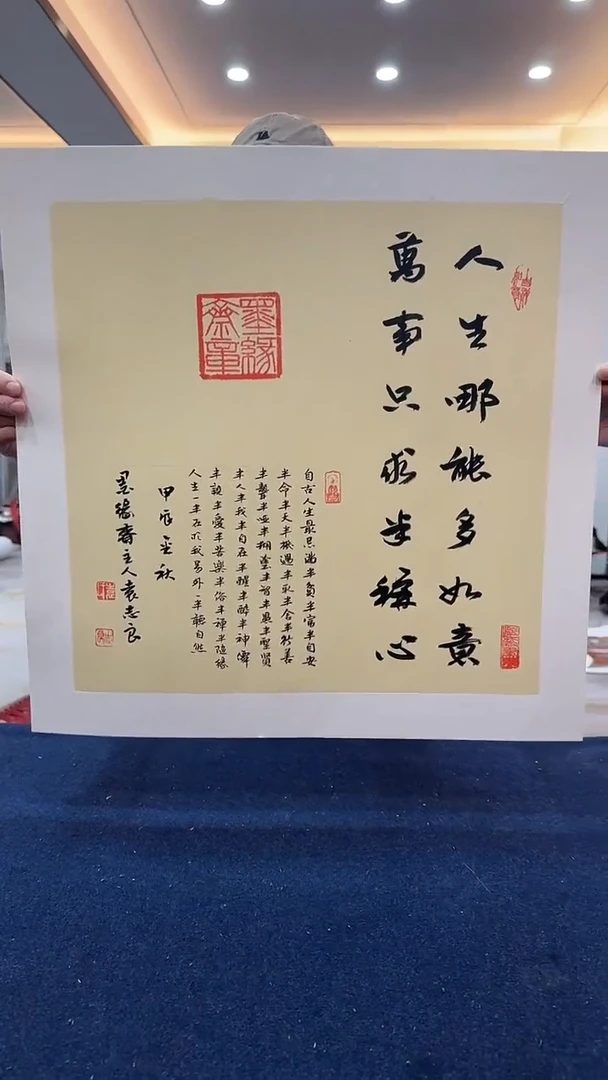 人生哪能多如意
萬事只求半稱心
自古人生最忌滿半貧半富半自安
半命半天半機遇半取半舍半行善
半聾半啞半糊塗半智半愚半聖賢
半人半我半自在半醒半醉半神僊
半親半愛半苦樂半俗半禪半隨緣
人生一半在於我另外一半聽自然
甲辰金秋
墨緣齋主人袁志良
墨緣
齋章